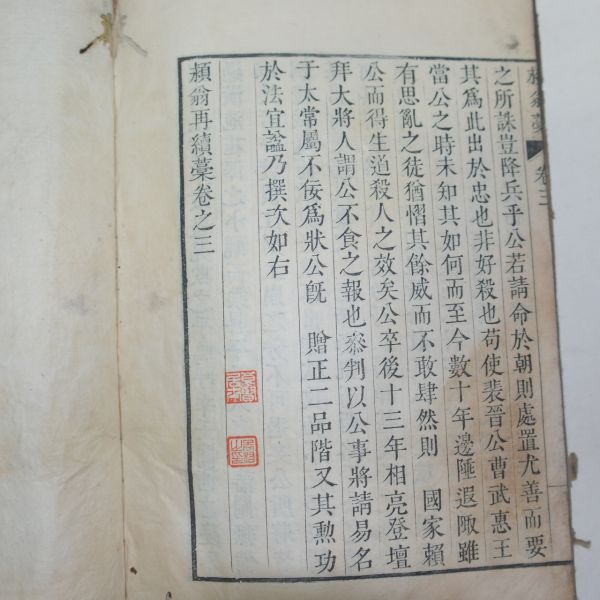 之所誅豈降兵乎公若請命於朝則處置尤善而要
其爲此出於忠也非好殺也苟使裴晉公曹武惠王
當公之時未知其如何而至今數十年邊陲遐陬雖
有思亂之徒猶慴其餘威而不敢肆然則　國家賴
公而得生道殺人之效矣公卒後十三年相亮登壇
拜大將人謂公不食之報也叅判以公事將請易名
于太常屬不佞爲狀公旣　贈正二品階又其勳功
於法宜謚乃撰次如右
頳翁再續藁卷之三